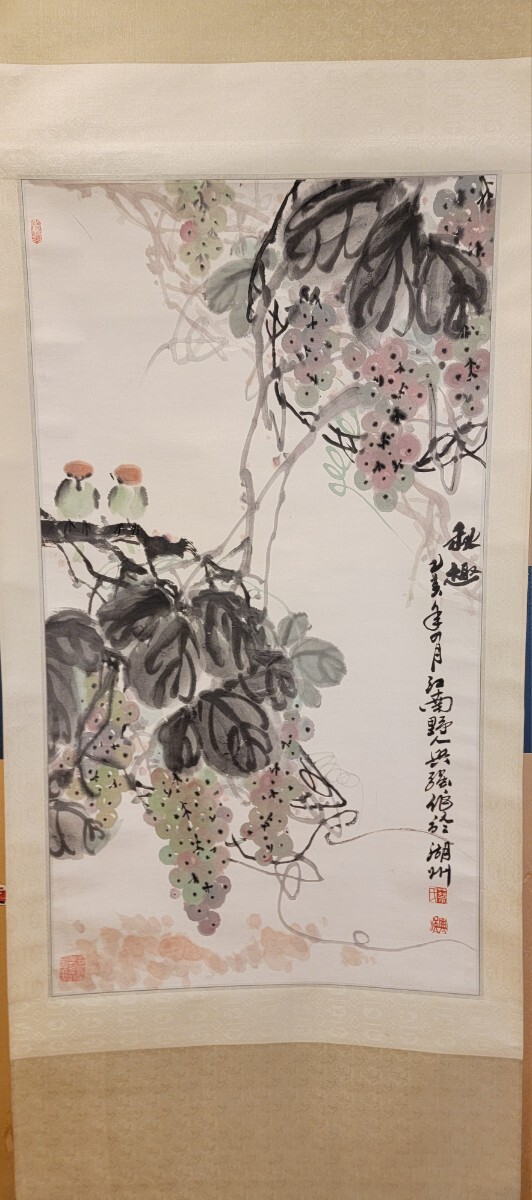 秋趣
己亥年四月江南野人兴强作于湖州